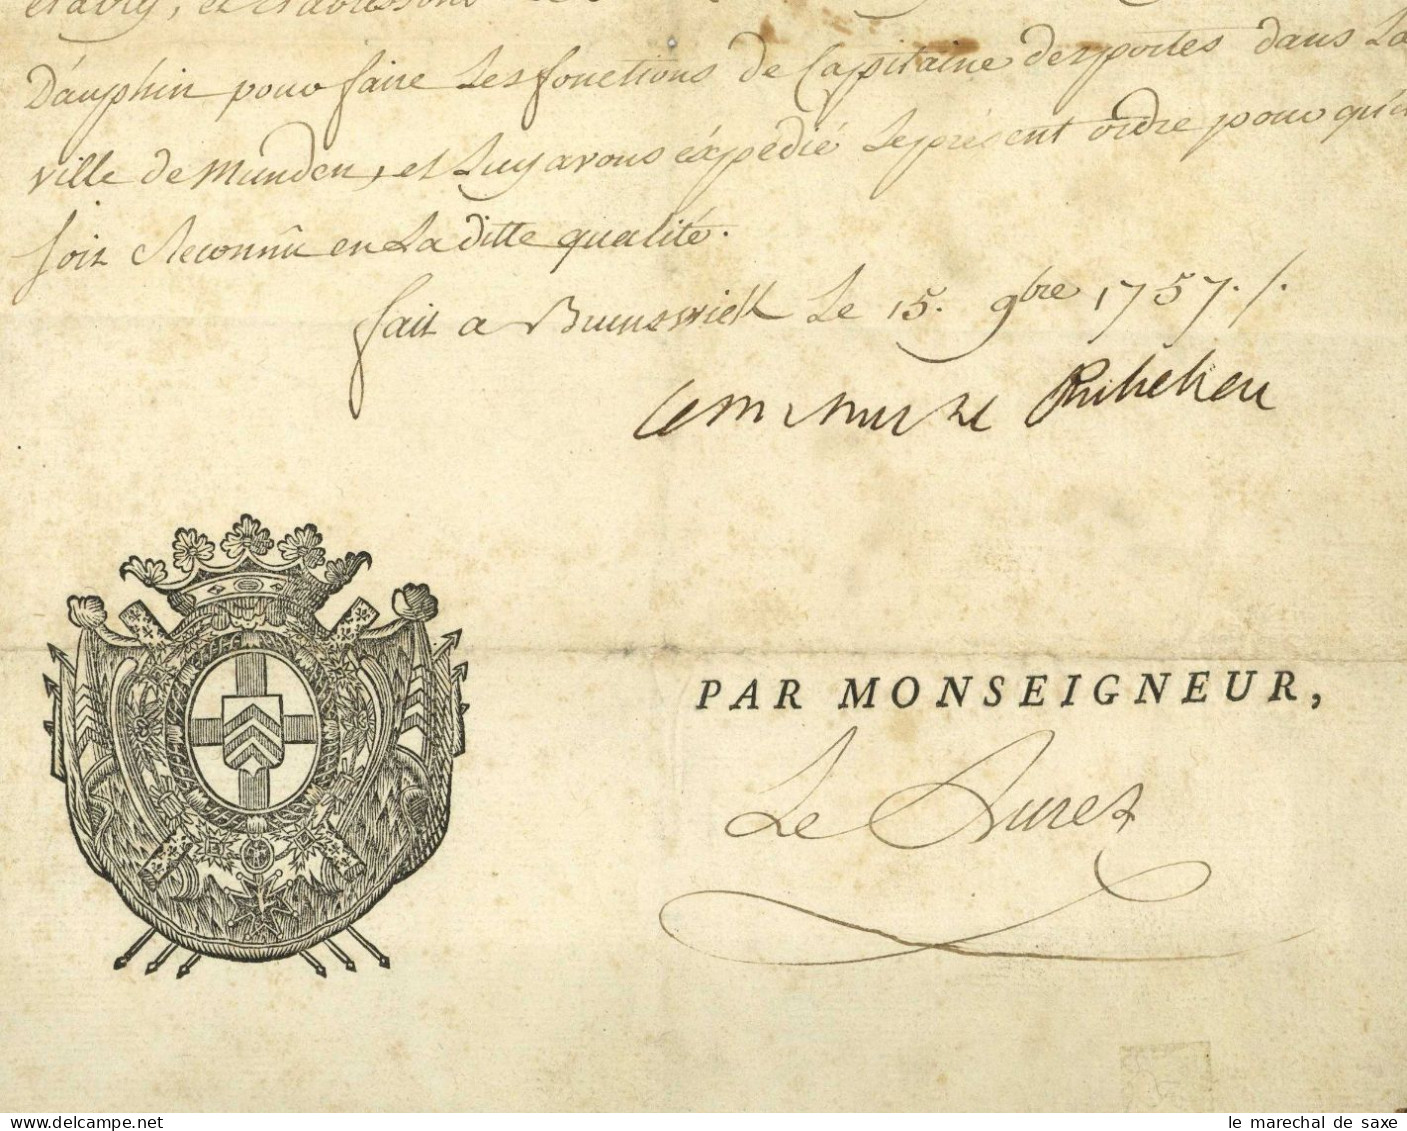 établi, et établissons
Dauphin pour faire Les fonctions de Capitaine des portes dans La
ville de Munden, et Luy avons éxpédié Le présent ordre pour qu'il
soit Reconnû en La ditte qualité.
fait a Brunswick Le 15. 9bre 1757. /.
Richelieu
PAR MONSEIGNEUR,
Le Surez
delcampe.net
le marechal de saxe